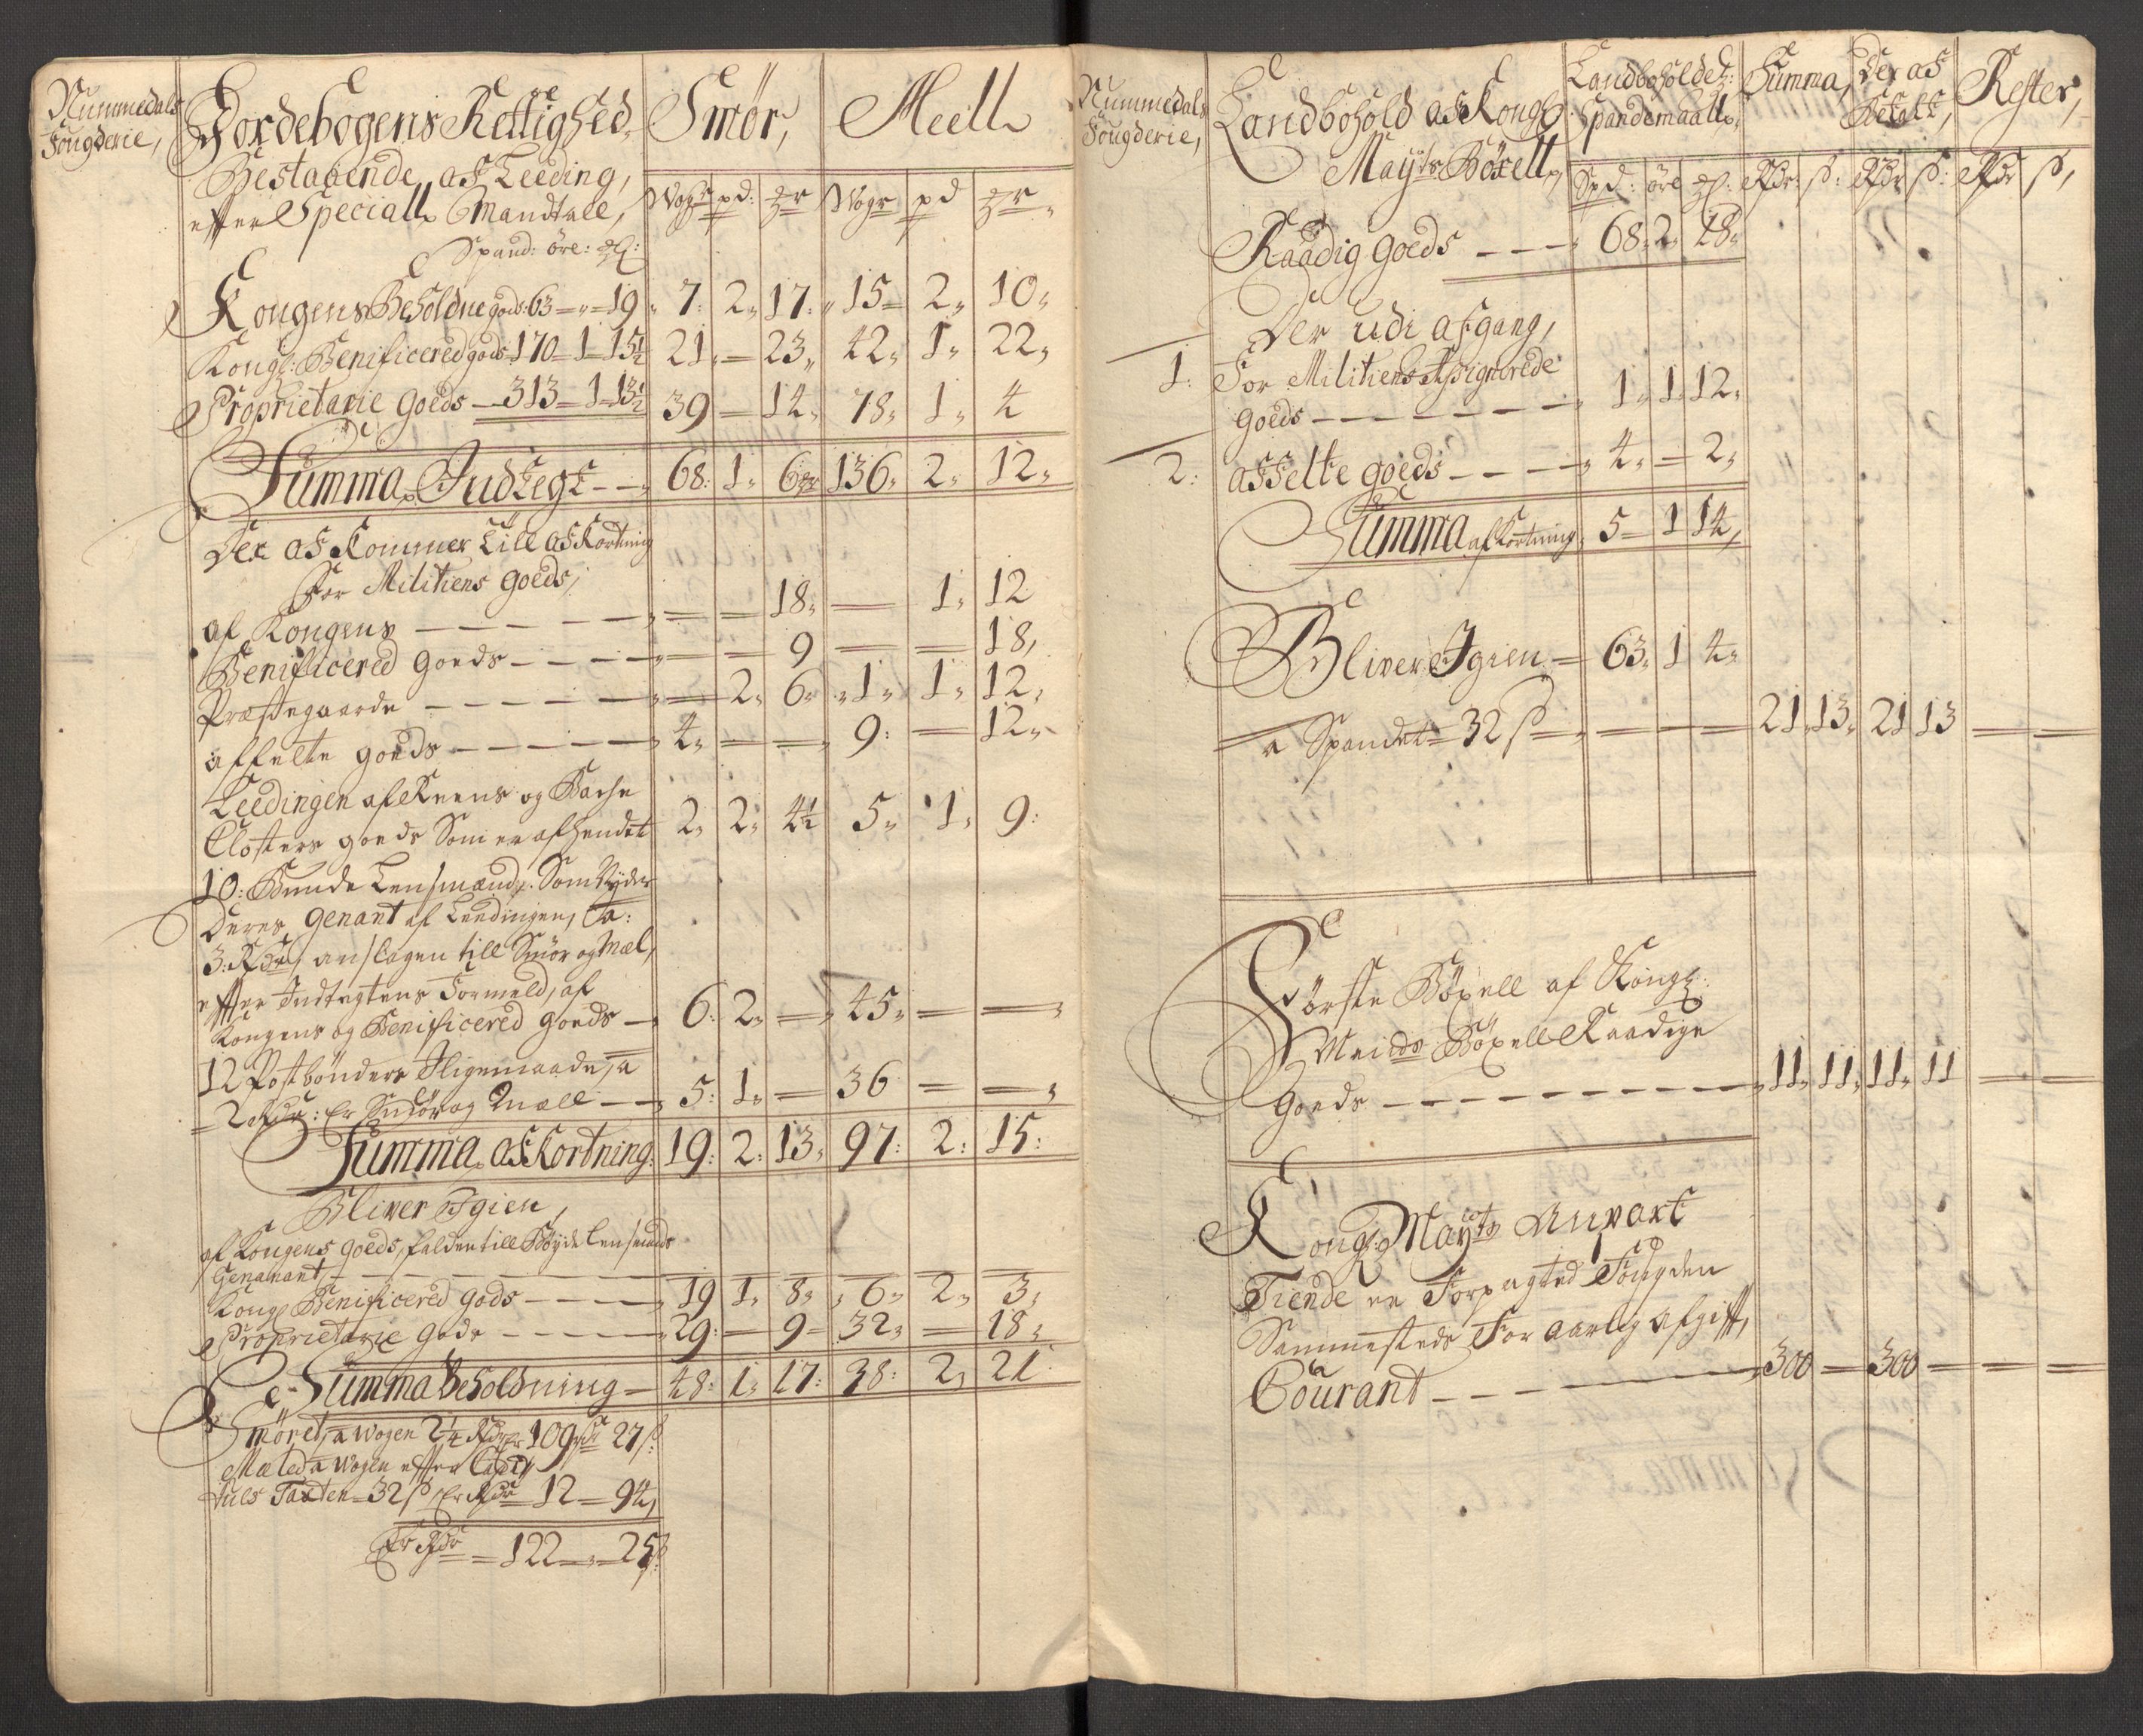 Nummedals
Fougderie,
Jordebogens Rettighed,
Bestaaende, af Leeding,
effter Speciall Mandtall,
Spand: öre:
Smör, Meell
Wogr pd: Wogr pd
Kongens Beholdne gods: 63 = „ = 19 „ 7: 2„ 17: „ 15 = 2„ 10„
Kongl: Benificered gods 170 = 1 = 15½ 21„ = 23„ 42„ 1„ 22„
Proprietarie Goeds — 313 = 1 = 13½ 39 — 14„ 78„ 1„ 4
Summa, Indtegt — 68: 1„ 6 136„ 2„ 12„
Der af Kommer till afkortning
For Militiens goeds,
af Kongens — — — — 18„ — 1„ 12
Benificered Goeds — — — — 9 — — 18,
Præstegaarde — — — — 2„ 6„ „1„ 1„ 12,
affelte goeds — — — — 4„ — — 9: — 12„
Leedingen af Reens og Backe
Closters goeds Som er afhendet 2„ 2„ 4½ 5„ 1„ 9:
10: Bunde Lensmænd, Som Nyder
deres Genant af Leedingen, a:
3: Rdr, anslagen till Smör og Mæl,
effter Indtegtens Formeld, af
Kongens og Benificered goeds — 6: 2„ = 45„ = =
12 Postbönder Iligemaade, a
2 Rdr: Er Smör og Mæll — 5: 1„ = 36 = =
Summa, afKortning: 19: 2: 13„ 97: 2: 15:
Bliver Igien,
af Kongens goeds, falden till Böyde Lensmænds
Genanant, — — — —
Kongl Benificered gods — — — 19 1„ 8„ „6„ 2„ 3,
Proprietarie gods — — — 29: — 9 — 32„ — 18„
Summa Beholdning — 48: 1„ 17: 38: 2, 21
Smöret, a Wogen 2¼ Rdr Er 109 rdr 27 ß:
Mæled a Wogen effter Capit
tuls Taxten = 32 ß, Er Rdr 12 = 94,
Er Rdr = 122 „ = 25 ß:
Nummedals
Fougderie,
Landbohold af Kongl:
Mayts Böxell,
Landboholdetz:
Spandemaall,
Summa, Der af
Betalt, Rester,
Spd: öre Rdr: ß: Rdr ß: Rdr ß,
Raadig Goeds — — — 68„ 2„ 18„
Der udi afgang,
1: For Militiens Assignerede
Goeds — — — — — 1„ 1„ 12„
2: affelte goeds — — — 4„ = 2„
Summa afkortning 5 = 1 14,
Bliver Igien = 63„ 1 4„
a Spandet = 32 ß = — — — 21„ 13„ 21 13 — —
Förste Böxell af Kongl:
Maits Böxell Raadige
Goeds — — — — — — 11„ 11„ 11„ 11 — —
Kongl: Mayts Anpart
Tiende er Forpagted Fougden
Sammesteds For aarlig afgifft,
Courant — — — — 300 — 300 — — —